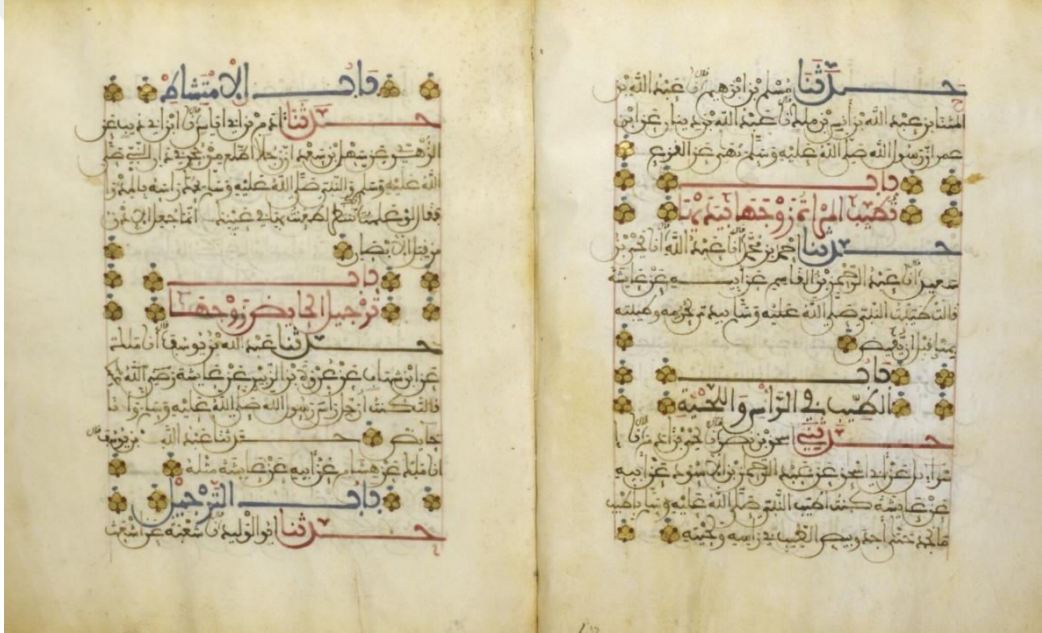 حدثنا مسلم بن ابرهيم نا عبد الله بن
المثنا بن عبد الله بن أنس بن ملك نا عبد الله بن دينار عن ابن
عمر ان رسول الله صلى الله عليه وسلم نهى عن القزع
باب
تطييب المرأة زوجها بيديها
حدثنا احمد بن محمد أنا عبد الله أنا يحيى بن
سعيد أنا عبد الرحمن بن القاسم عن ابيه عن عائشة
قالت طيبت النبي صلى الله عليه وسلم بيدي لحرمه وطيبته
بمنى قبل ان يفيض
باب
الطيب في الرأس واللحية
حدثني اسحق بن نصر نا يحيى بن ءادم نا
اسراءيل عن أبي اسحق عن عبد الرحمن بن الأسود عن أبيه
عن عائشة كنت أطيب النبي صلى الله عليه وسلم بأطيب
ما يجد حتى أجد وبيص الطيب في رأسه ولحيته
باب الامتشاط
حدثنا ادم بن ابي اياس نا ابن ابي ذيب عن
الزهري عن سهل بن سعد ان رجلا اطلع من جحر في دار النبي صلى
الله عليه وسلم والنبي صلى الله عليه وسلم يحك رأسه بالمدرى
فقال لو علمت تنظر لطعنت بها في عينك انما جعل الاذن
من قبل الابصار
باب
ترجيل الحايض زوجها
حدثنا عبد الله بن يوسف أنا ملك
عن ابن شهاب عن عروة بن الزبير عن عائشة رضي الله عنها
قالت كنت أرجل رأس رسول الله صلى الله عليه وسلم وأنا
حايض حدثنا عبد الله بن يوسف
انا ملك عن هشام عن أبيه عن عائشة مثله
باب الترجيل
حدثنا ابو الوليد نا شعبة عن اشعث